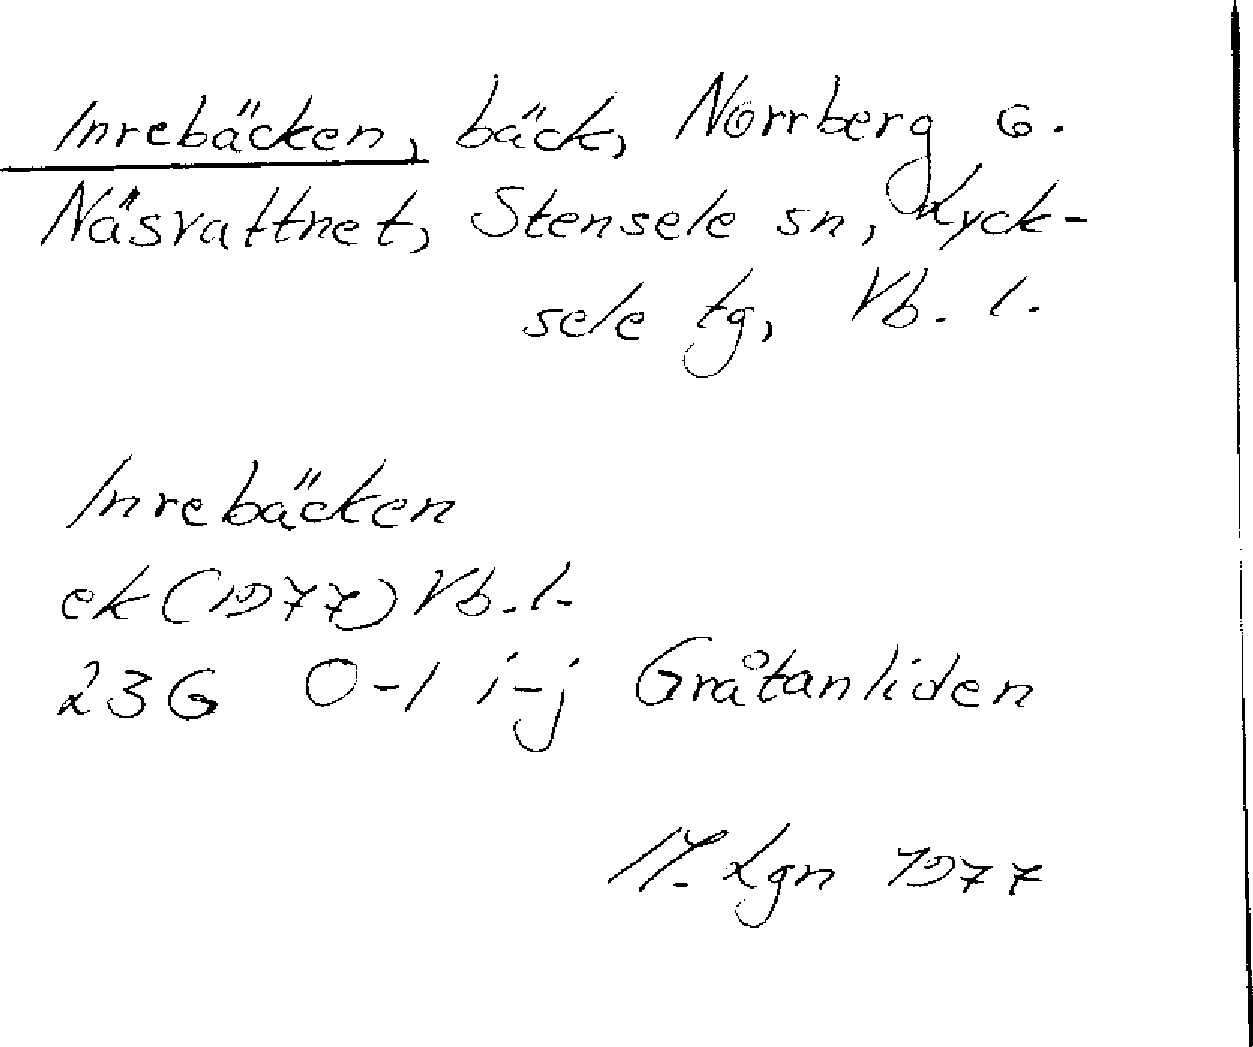 Inrebäcken, bäck, Norrberg o.
Näsvattnet, Stensele sn, Lyck-
sele tg, Vb. l.
Inrebäcken
ek (1977) Vb. l.
23G 0-1 i-j Gråtanliden
Lgn 1977